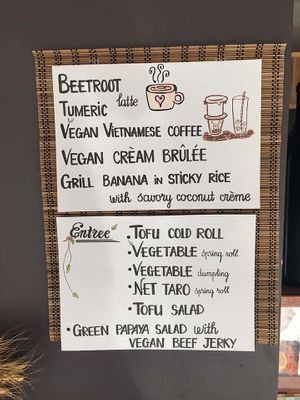 BEETROOT
TUMERIC latte
VEGAN VIETNAMESE COFFEE
VEGAN CRÈAM BRÛLÉE
GRILL BANANA IN STICKY RICE
with savory coconut crème
Entree
• TOFU COLD ROLL
• VEGETABLE spring roll
• VEGETABLE dumpling
• NET TARO spring roll
• TOFU SALAD
• GREEN PAPAYA SALAD with
VEGAN BEEF JERKY